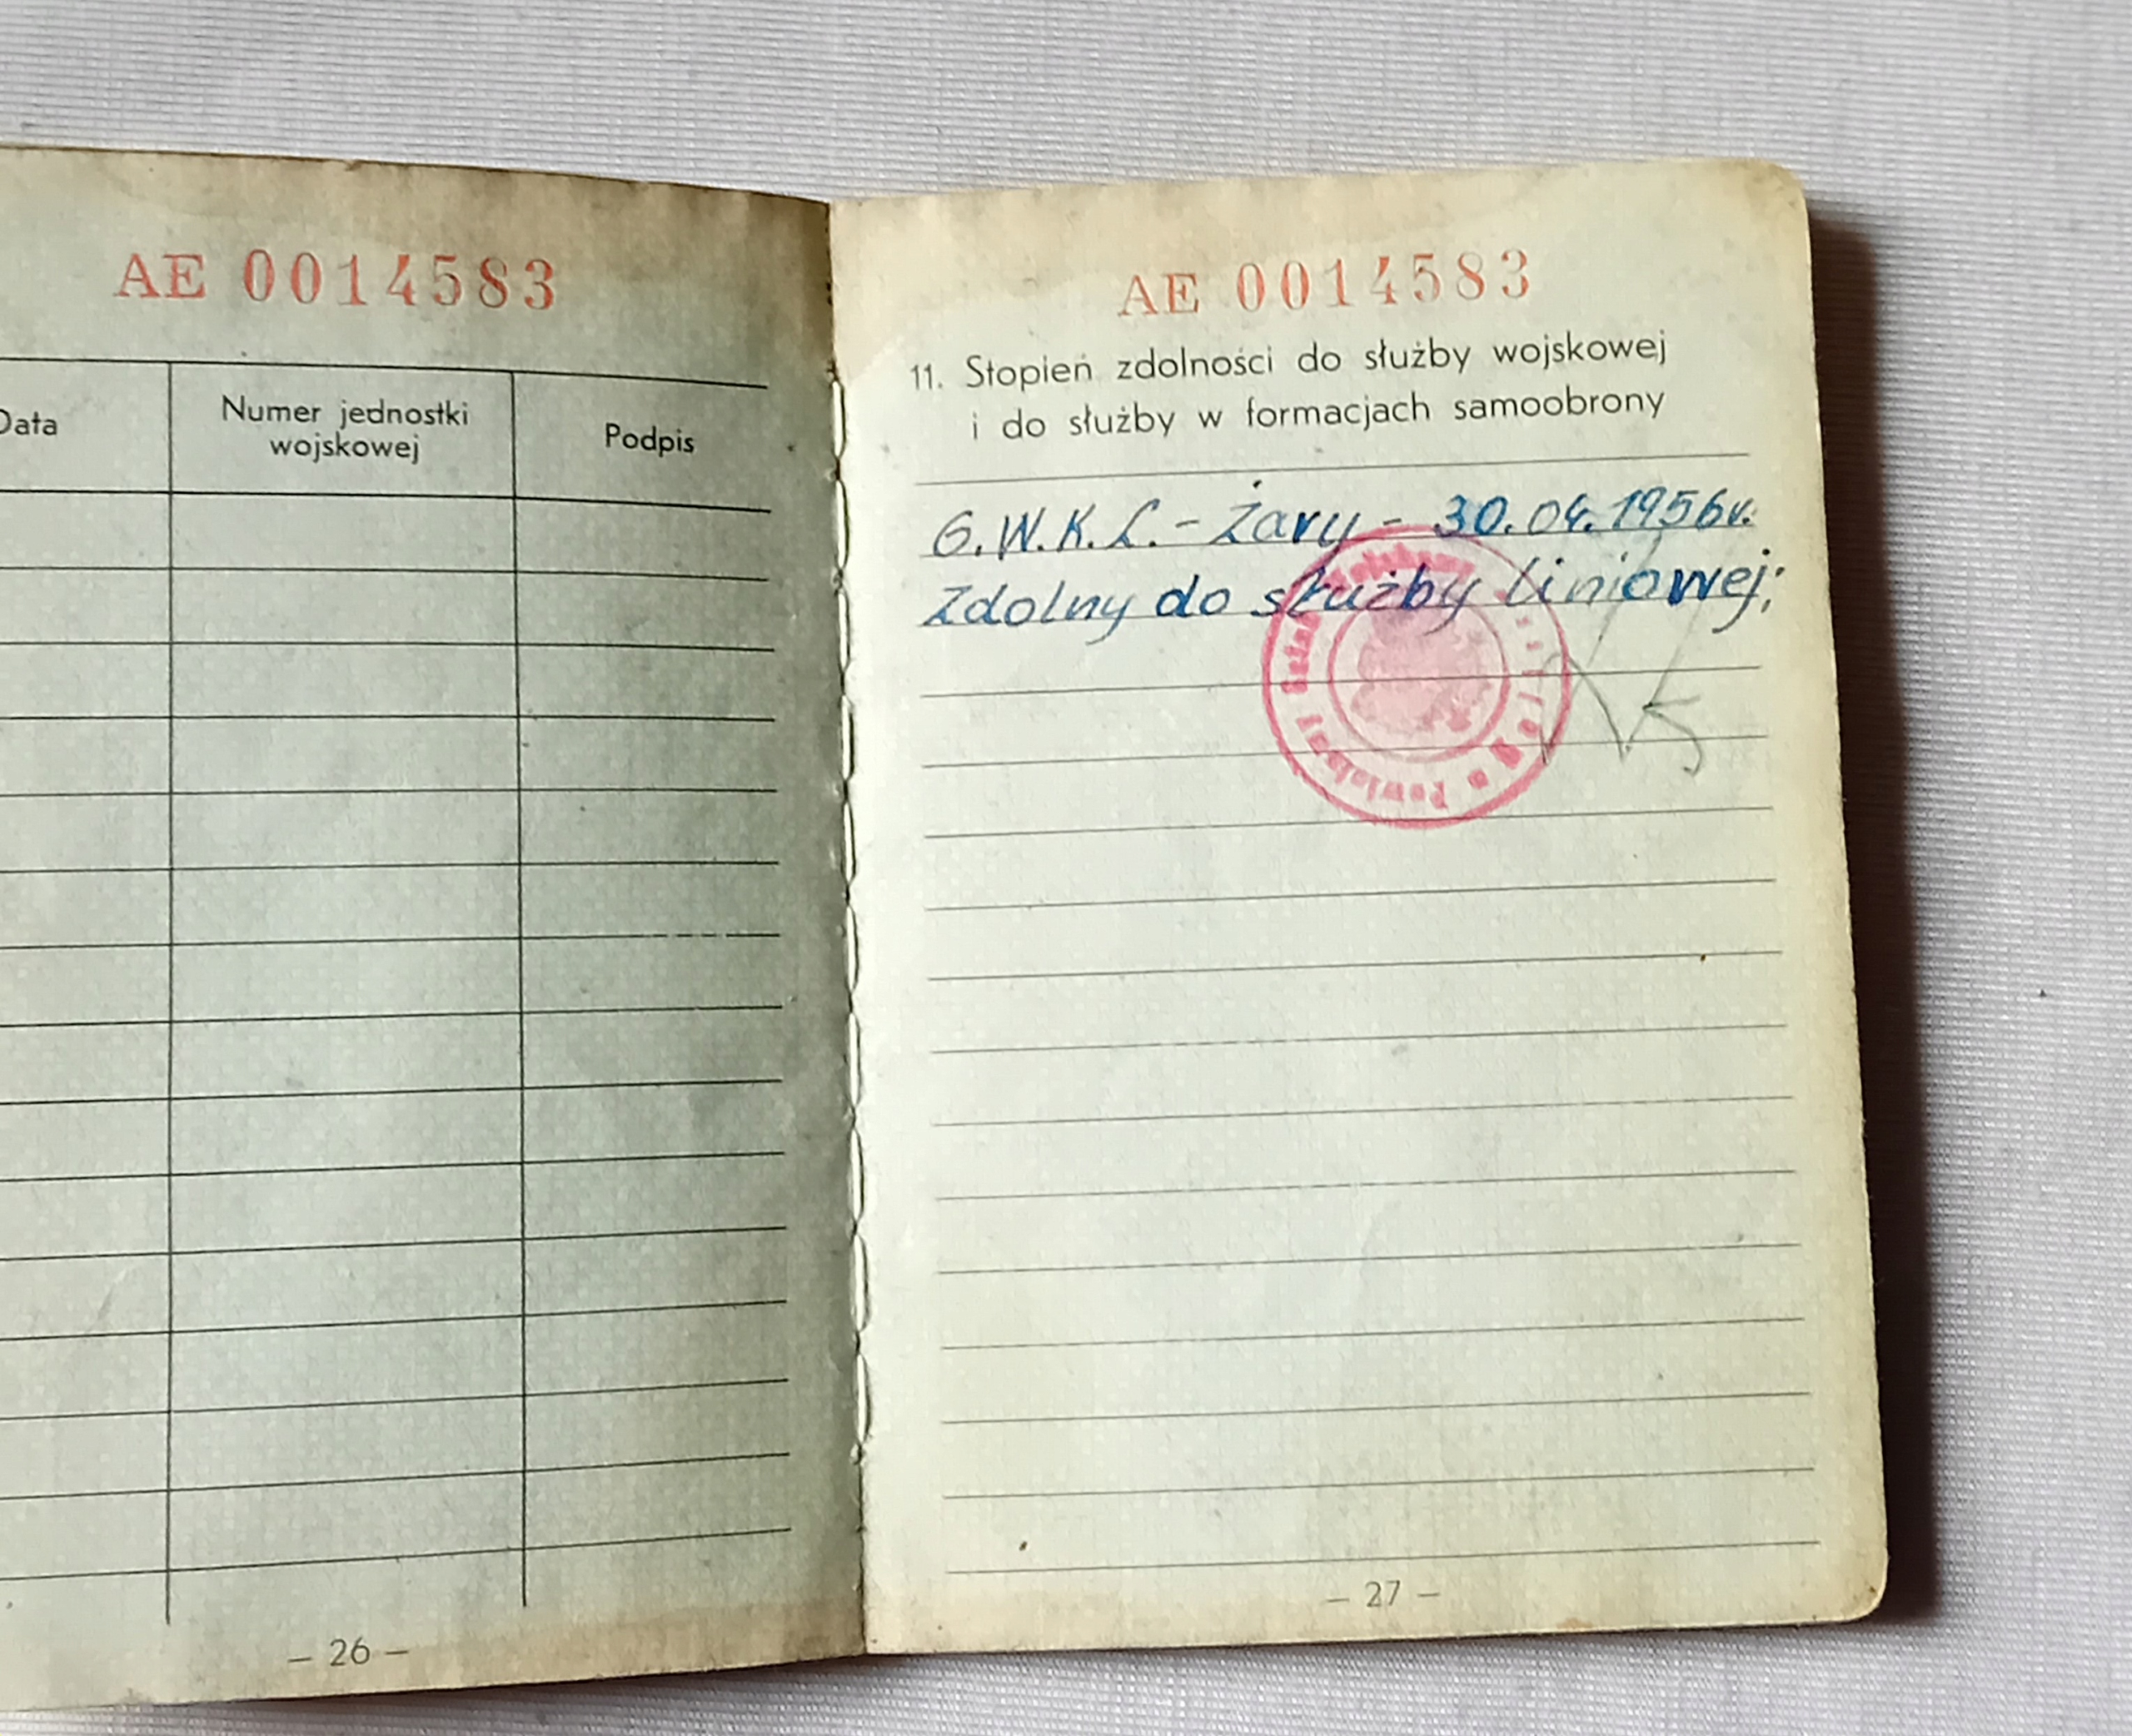 AE 0014583
Data
Numer jednostki
wojskowej
Podpis
– 26 –
AE 0014583
11. Stopień zdolności do służby wojskowej
i do służby w formacjach samoobrony
G.W.K.L. - Żary - 30.04.1956r.
Zdolny do służby liniowej;
– 27 –